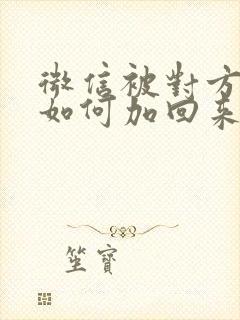 微信被對方
如何加回來
笙寶